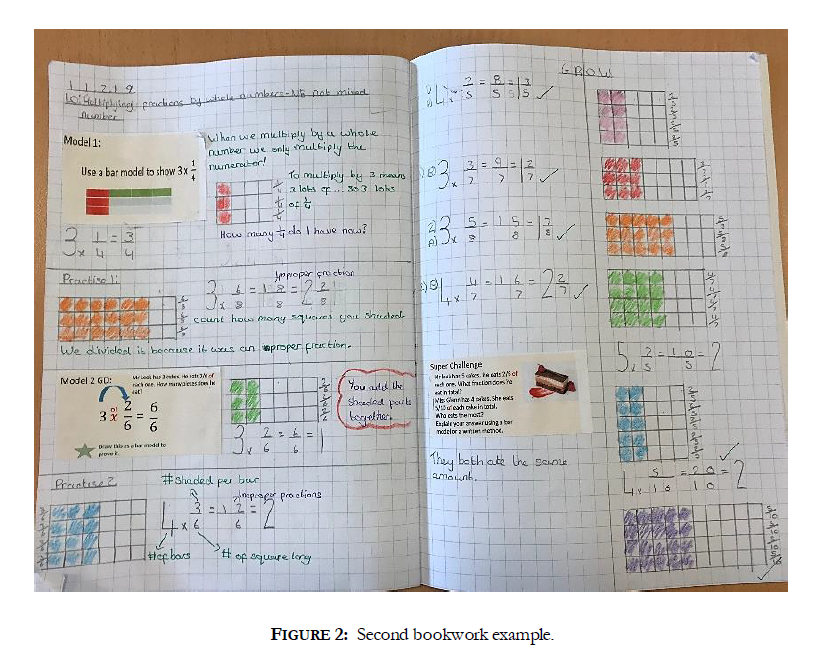 1 1 . 2 . 1 9
LC: Multiplying fractions by whole numbers - NB not mixed
number
Model 1:
Use a bar model to show 3x 1/4
When we multiply by a whole
number we only multiply the
numerator!
To multiply by 3 means
3 lots of ... so 3 lots
of 1/4
How many 1/4 do I have now?
3 x 1/4 = 3/4
Practise 1:
Improper fraction
3 x 6/8 = 18/8 = 2 2/8
count how many squares you shaded
We divided it because it was an improper fraction.
Model 2 GD:
Mr Leak has 3 cakes. He eats 2/6 of
each one. How many pieces does he
eat?
of
3 x 2/6 = 6/6
Draw this as a bar model to
prove it.
3 x 2/6 = 6/6 = 1
You add the
shaded parts
together.
Practise 2
# shaded per bar
Improper fractions
4 x 3/6 = 12/6 = 2
# of bars
# of square long
GROW
4 x 2/5 = 8/5 = 1 3/5
3 x 3/7 = 9/7 = 1 2/7
3 x 5/8 = 15/8 = 1 7/8
4 x 4/7 = 16/7 = 2 2/7
5 x 2/5 = 10/5 = 2
Super Challenge
Mr Leak has 5 cakes. He eats 2/5 of
each one. What fraction does he
eat in total?
Miss Glenn has 4 cakes. She eats
5/10 of each cake in total.
Who eats the most?
Explain your answer using a bar
model or a written method.
They both ate the same
amount.
4 x 5/10 = 20/10 = 2
FIGURE 2: Second bookwork example.